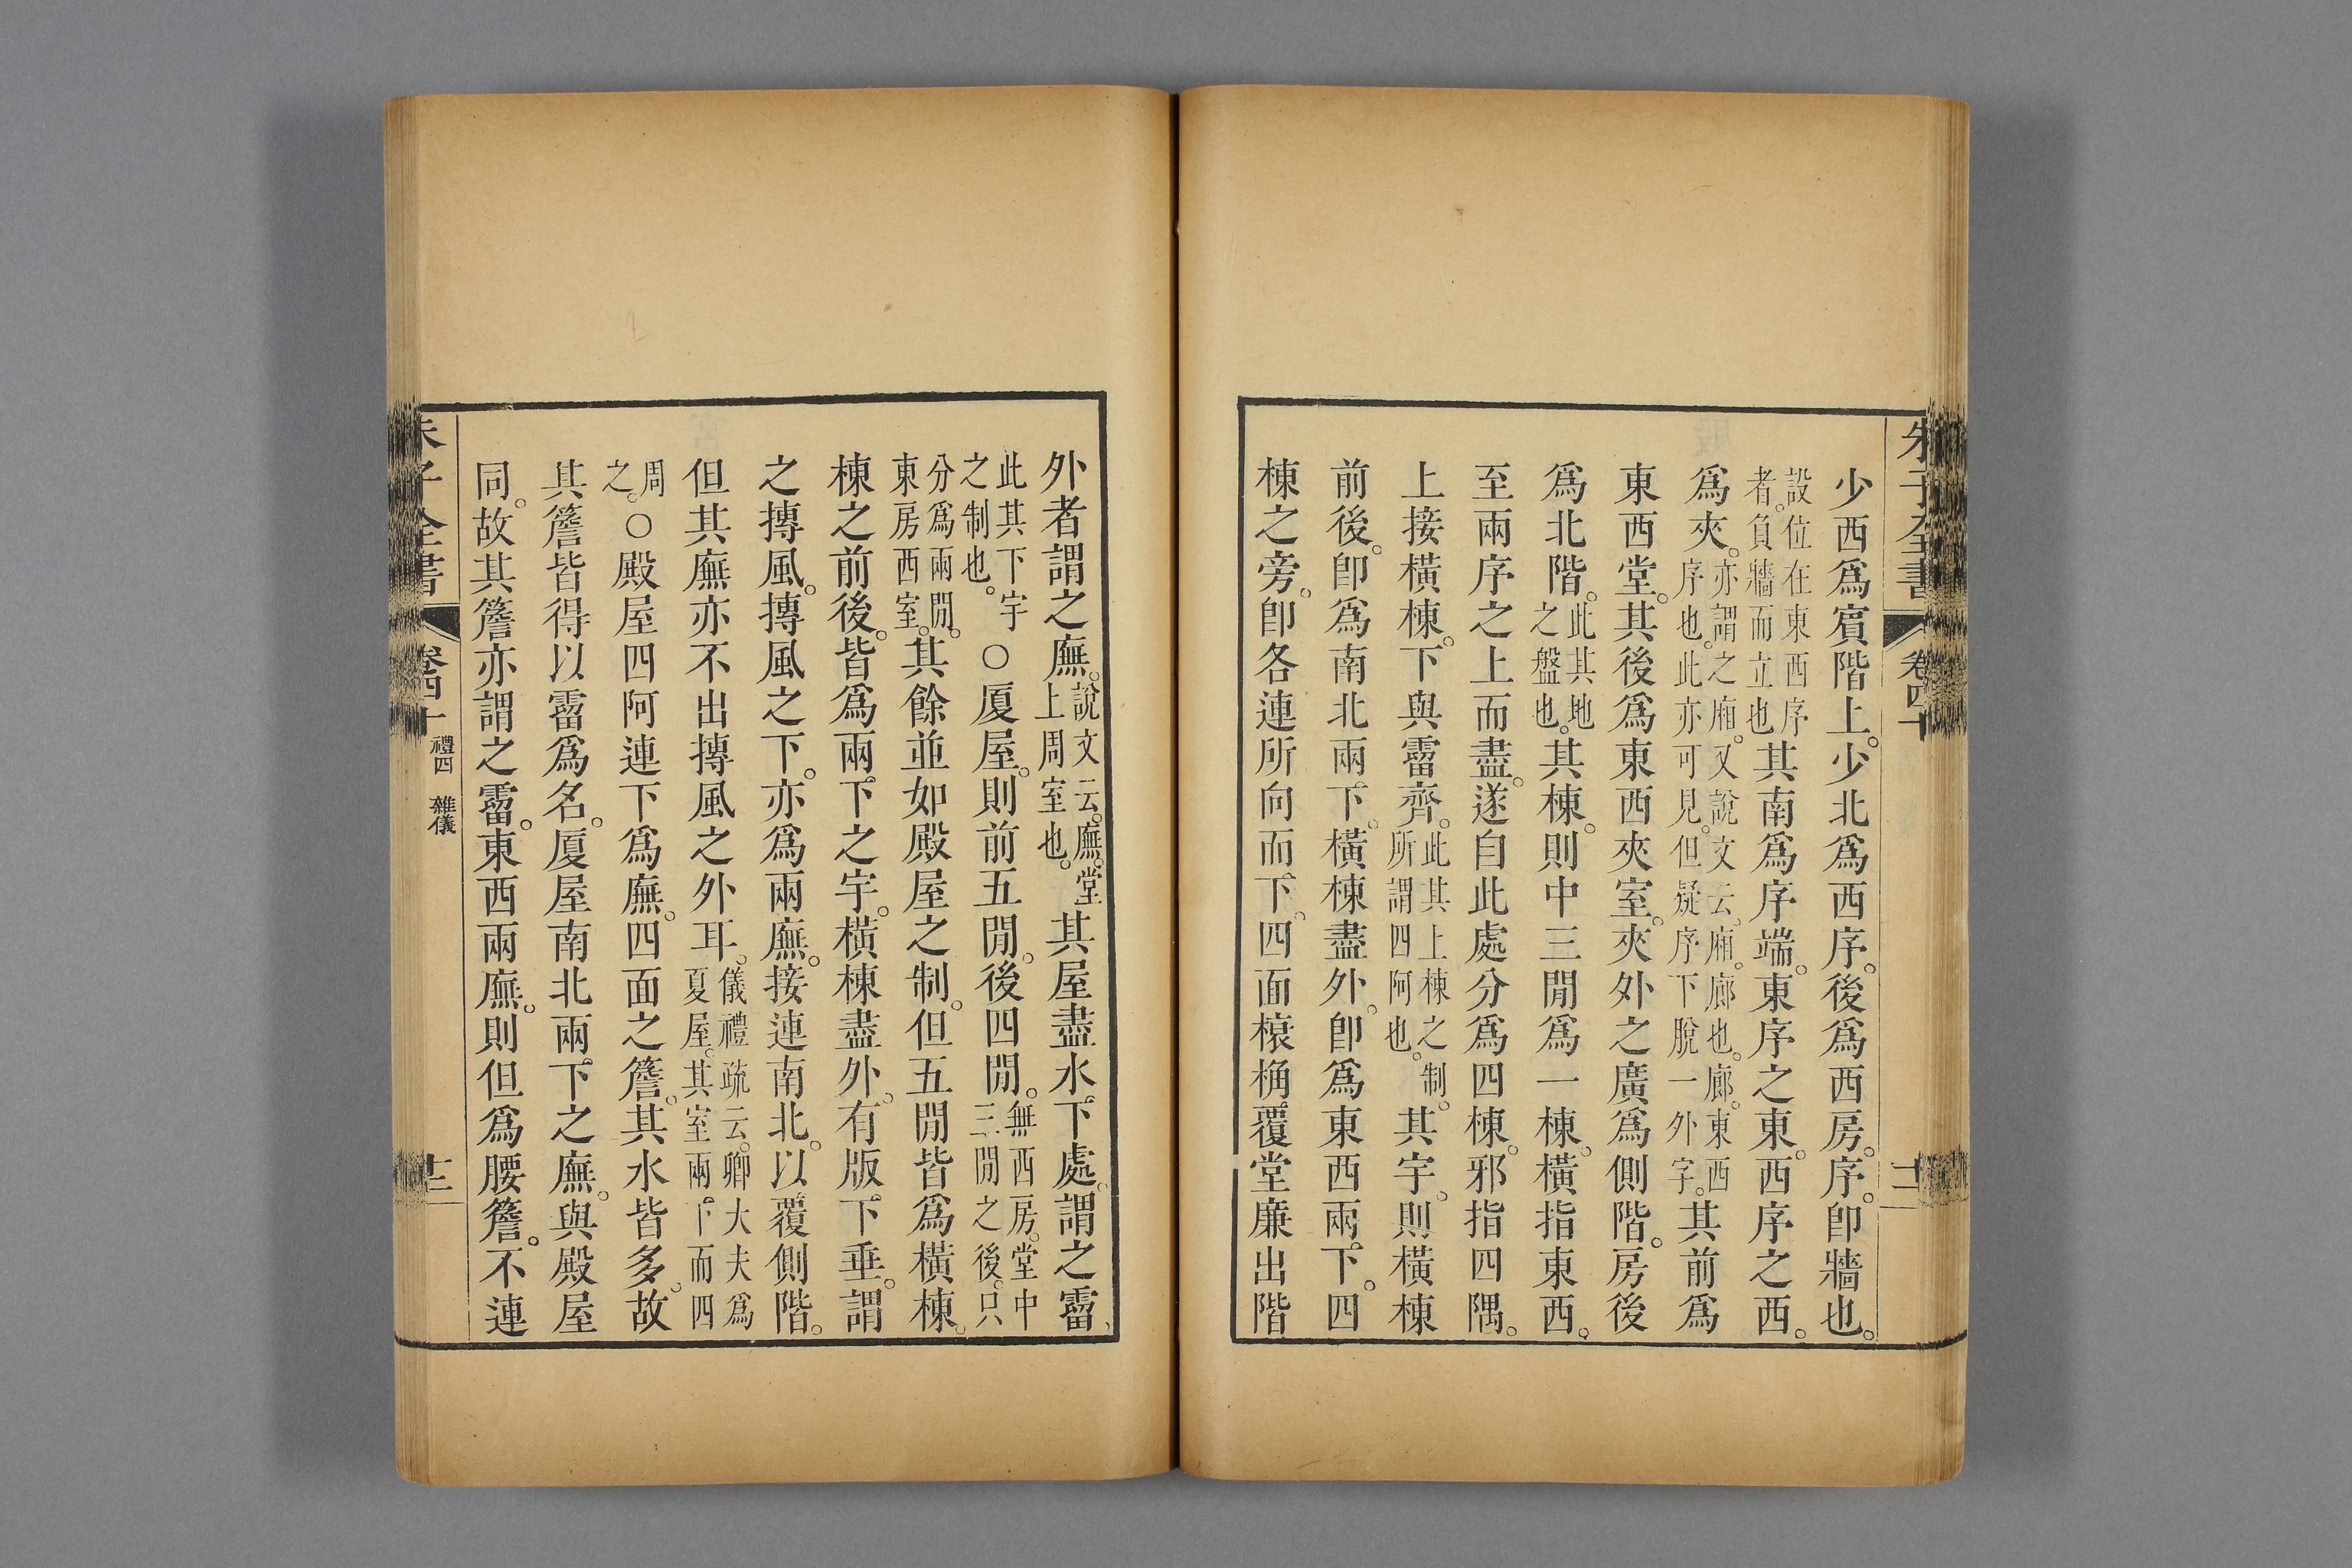 朱子全書 卷四十 十二
少西爲賔階上。少北爲西序。後爲西房。序。卽牆也。
設位在東西序
者。負牆而立也
其南爲序端。東序之東。西序之西。
爲夾。
亦謂之廂。又說文云。廂。廊也。廊。東西
序也。此亦可見。但疑序下脫一外字。
其前爲
東西堂。其後爲東西夾室。夾外之廣爲側階。房後
爲北階。
此其地
之盤也。
其棟。則中三閒爲一棟。橫指東西。
至兩序之上而盡。遂自此處分爲四棟。邪指四隅。
上接橫棟。下與霤齊。
此其上棟之制。
所謂四阿也。
其宇。則橫棟
前後。卽爲南北兩下。橫棟盡外。卽爲東西兩下。四
棟之旁。卽各連所向而下。四面榱桷。覆堂廉出階
外者謂之廡。
說文云。廡。堂
上周室也。
其屋盡水下處。謂之霤、
此其下宇
之制也。
○厦屋。則前五閒。後四閒。
無西房。堂中
三閒之後。只
分爲兩閒。
東房西室。
其餘並如殿屋之制。但五閒皆爲橫棟。
棟之前後。皆爲兩下之宇。橫棟盡外。有版下垂。謂
之搏風。搏風之下。亦爲兩廡。接連南北。以覆側階。
但其廡亦不出搏風之外耳。
儀禮疏云。卿大夫爲
夏屋。其室兩下而四
周
之。
○殿屋四阿連下爲廡。四面之簷。其水皆多。故
其簷皆得以霤爲名。厦屋南北兩下之廡。與殿屋
同。故其簷亦謂之霤。東西兩廡。則但爲腰簷。不連
朱子全書 卷四十 禮四 雜儀 十二